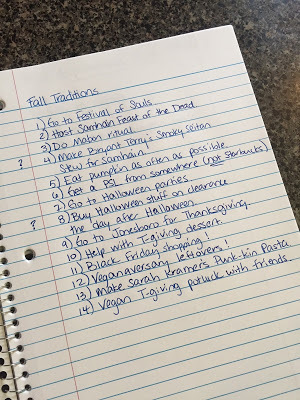 Fall Traditions
1) Go to Festival of Souls
2) Host Samhain Feast of the Dead
3) Do Mabon ritual
? 4) Make Bryant Terry's Smoky Seitan
Stew for Samhain
5) Eat pumpkin as often as possible
6) Get a PSL from somewhere (not Starbucks)
7) Go to Halloween parties
? 8) Buy Halloween stuff on clearance
the day after Halloween
9) Go to Jonesboro for Thanksgiving
10) Help with T-giving dessert
11) Black Friday shopping!
12) Veganaversary leftovers!
13) Make Sarah Kramer's Punk-kin Pasta
14) Vegan T-giving potluck with friends.